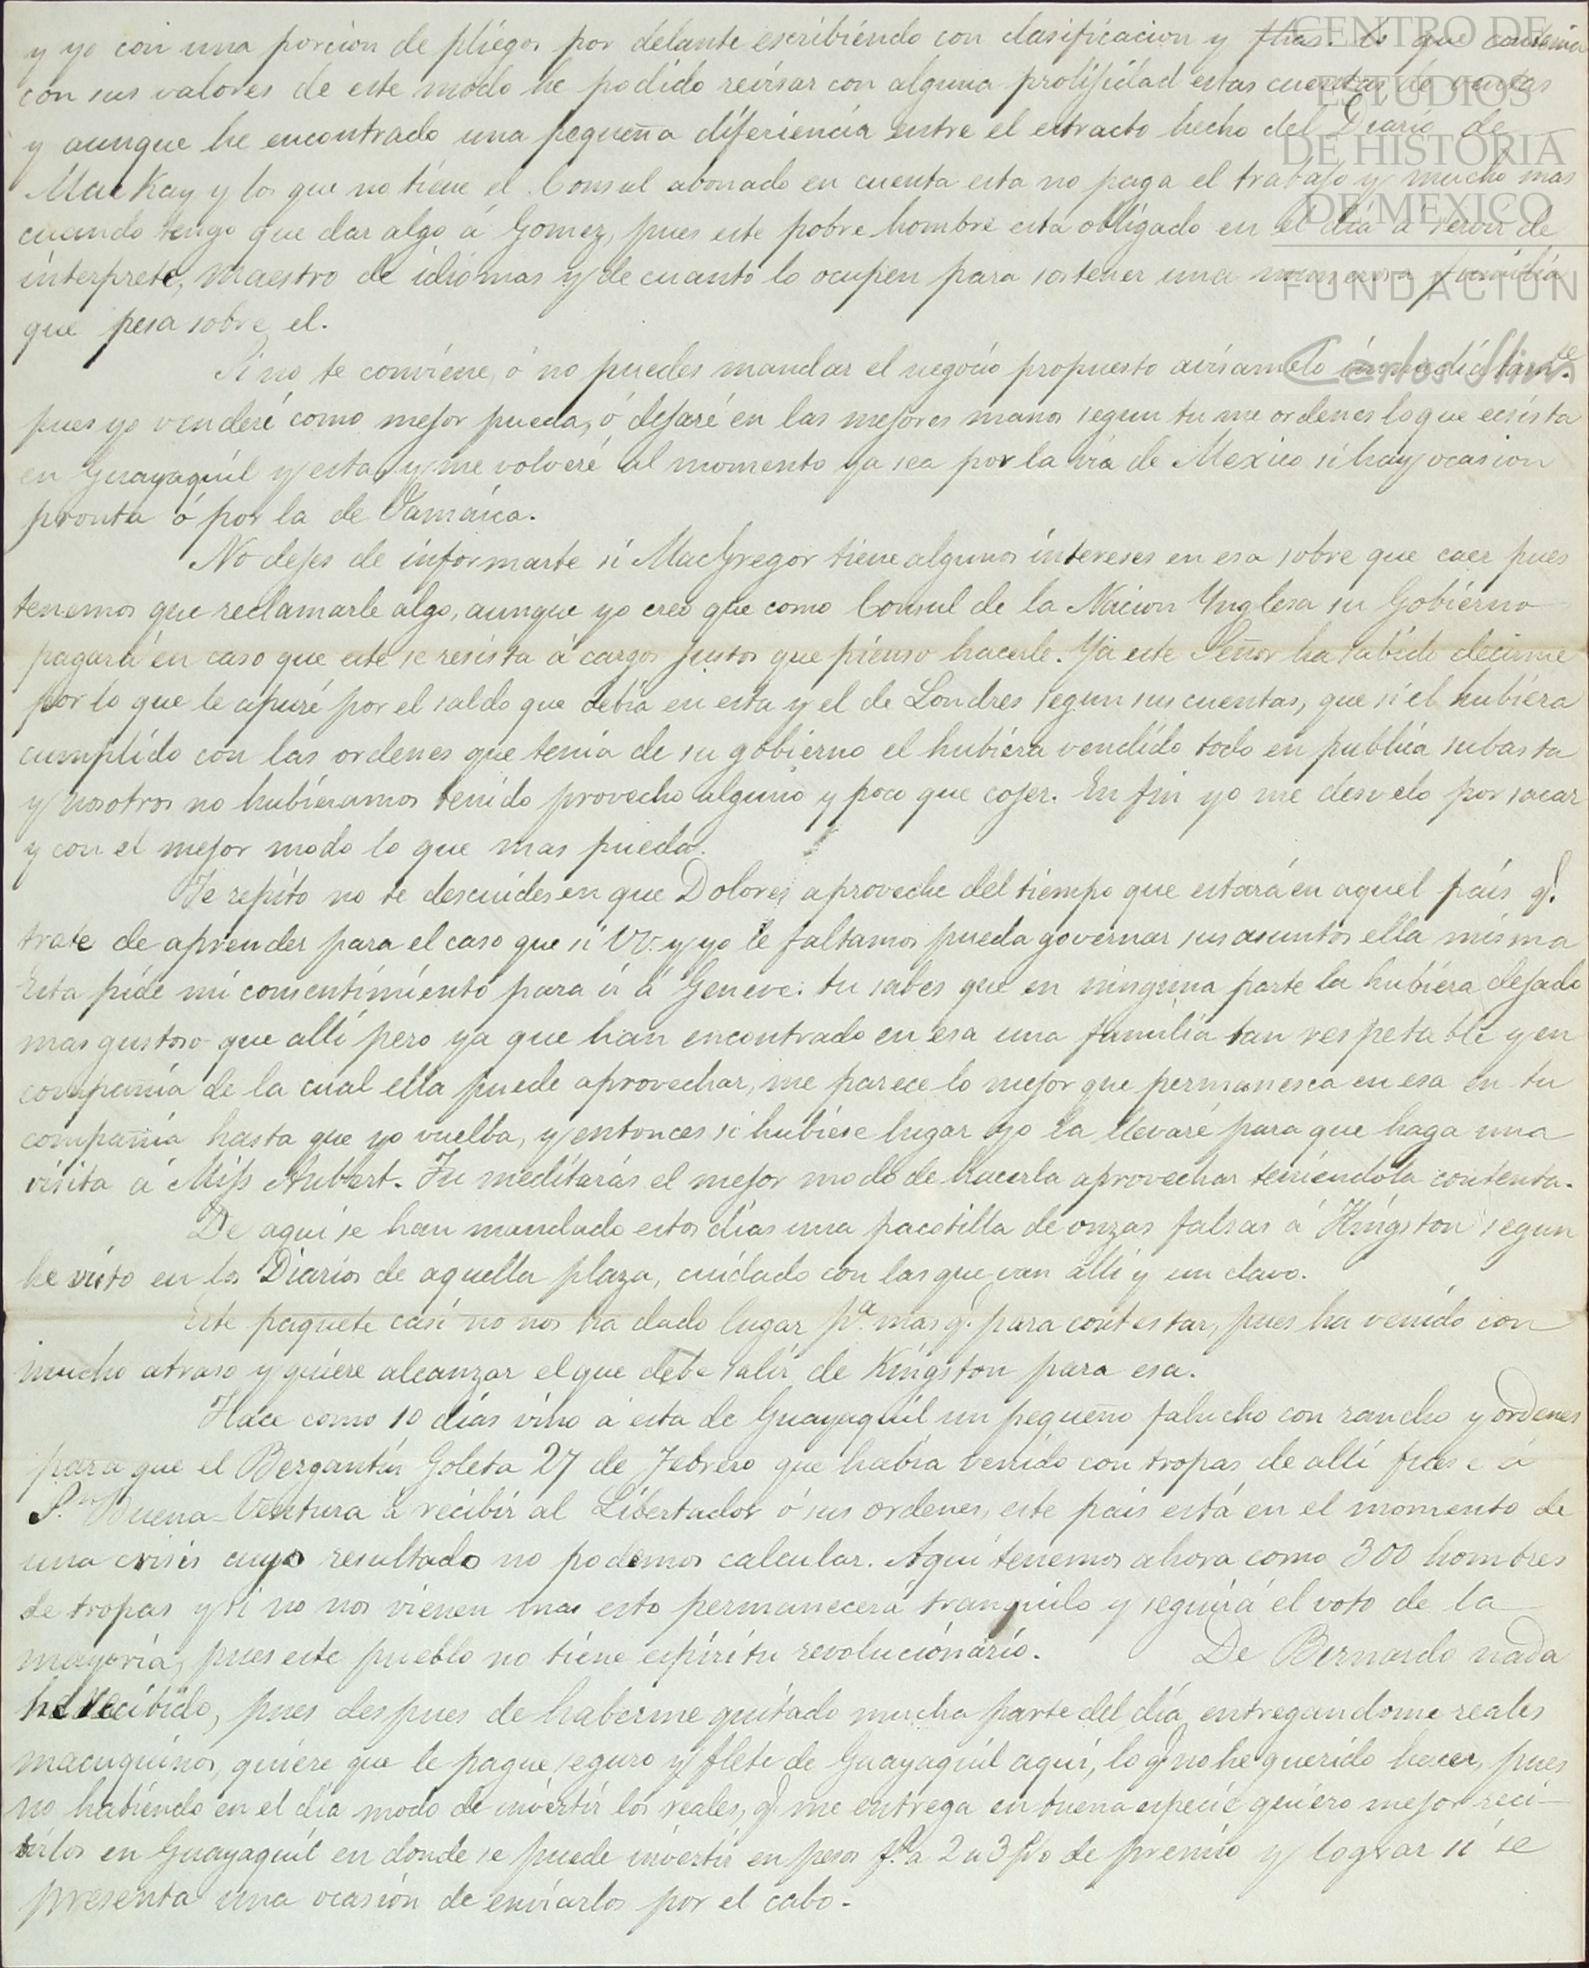 y yo con una porcion de pliegos por delante escribiendo con clasificacion y fhas. lo que contenia
con sus valores de este modo he podido revisar con alguna prolijidad estas cuentas de ventas
y aunque he encontrado una pequeña diferiencia entre el extracto hecho del Diario de
MacKay y los que no tiene el Consul abonado en cuenta esta no paga el trabajo y mucho mas
cuando tengo que dar algo á Gomez, pues este pobre hombre esta obligado en el dia á servir de
interprete, maestro de idiomas y de cuanto lo ocupen para sostener una numerosa familia
que pesa sobre el.
Si no te conviene, ó no puedes mandar el negocio propuesto avisamelo inmediatamte.
pues yo venderé como mejor pueda, ó dejaré en las mejores manos segun tu me ordenes lo que ecsista
en Guayaquil y esta, y me volveré al momento ya sea por la via de Mexico si hay ocasion
pronta ó por la de Jamaica.
No dejes de informarte si MacGregor tiene algunos intereses en esa sobre que caer pues
tenemos que reclamarle algo, aunque yo creo que como Consul de la Nacion Ynglesa su Gobierno
pagará en caso que este se resista á cargos justos que pienso hacerle. Ya este Señor ha sabido decirme
por lo que le apuré por el saldo que debia en esta y el de Londres segun sus cuentas, que si el hubiera
cumplido con las ordenes que tenia de su gobierno el hubiera vendido todo en publica subasta
y nosotros no hubieramos tenido provecho alguno y poco que cojer. En fin yo me desvelo por sacar
y con el mejor modo lo que mas pueda.
Te repito no te descuides en que Dolores aproveche del tiempo que estará en aquel país q.
trate de aprender para el caso que si VV. y yo le faltamos pueda governar sus asuntos ella misma
Esta pide mi consentimiento para ir á Geneve: tu sabes que en ninguna parte la hubiera dejado
mas gustoso que alli pero ya que han encontrado en esa una familia tan respetable y en
compañia de la cual ella puede aprovechar, me parece lo mejor que permanesca en esa en tu
compañia hasta que yo vuelba, y entonces si hubiese lugar yo la llevaré para que haga una
visita á Miss Aubert. Tu meditarás el mejor modo de hacerla aprovechar teniendola contenta.
De aqui se han mandado estos dias una pacotilla de onzas falsas á Kingston segun
he visto en los Diarios de aquella plaza, cuidado con las que van alli y un clavo.
Este paquete casi no nos ha dado lugar pa. mas q. para contestar, pues ha venido con
mucho atraso y quiere alcanzar el que debe salir de Kingston para esa.
Hace como 10 dias vino á esta de Guayaquil un pequeño falucho con rancho y ordenes
para que el Bergantin Goleta 27 de Febrero que habia venido con tropas de alli fuese á
Sn. Buena-Ventura á recibir al Libertador ó sus ordenes, este pais está en el momento de
una crisis cuyo resultado no podemos calcular. Aqui tenemos ahora como 300 hombres
de tropas y si no nos vienen mas esto permanecerá tranquilo y seguirá el voto de la
mayoria, pues este pueblo no tiene espiritu revolucionario. De Bernardo nada
he recibido, pues despues de haberme quitado mucha parte del dia entregandome reales
macuquinos, quiere que le pague seguro y flete de Guayaquil aqui, lo q. no he querido hacer, pues
no habiendo en el dia modo de invertir los reales, q. me entrega en buena especie quiero mejor reci-
birlos en Guayaquil en donde se puede invertir en pesos fs. a 2 a 3 p/o de premio y lograr si se
presenta una ocasión de enviarlos por el cabo.
CENTRO DE
ESTUDIOS
DE HISTORIA
DE MEXICO
FUNDACIÓN
Carlos Slim